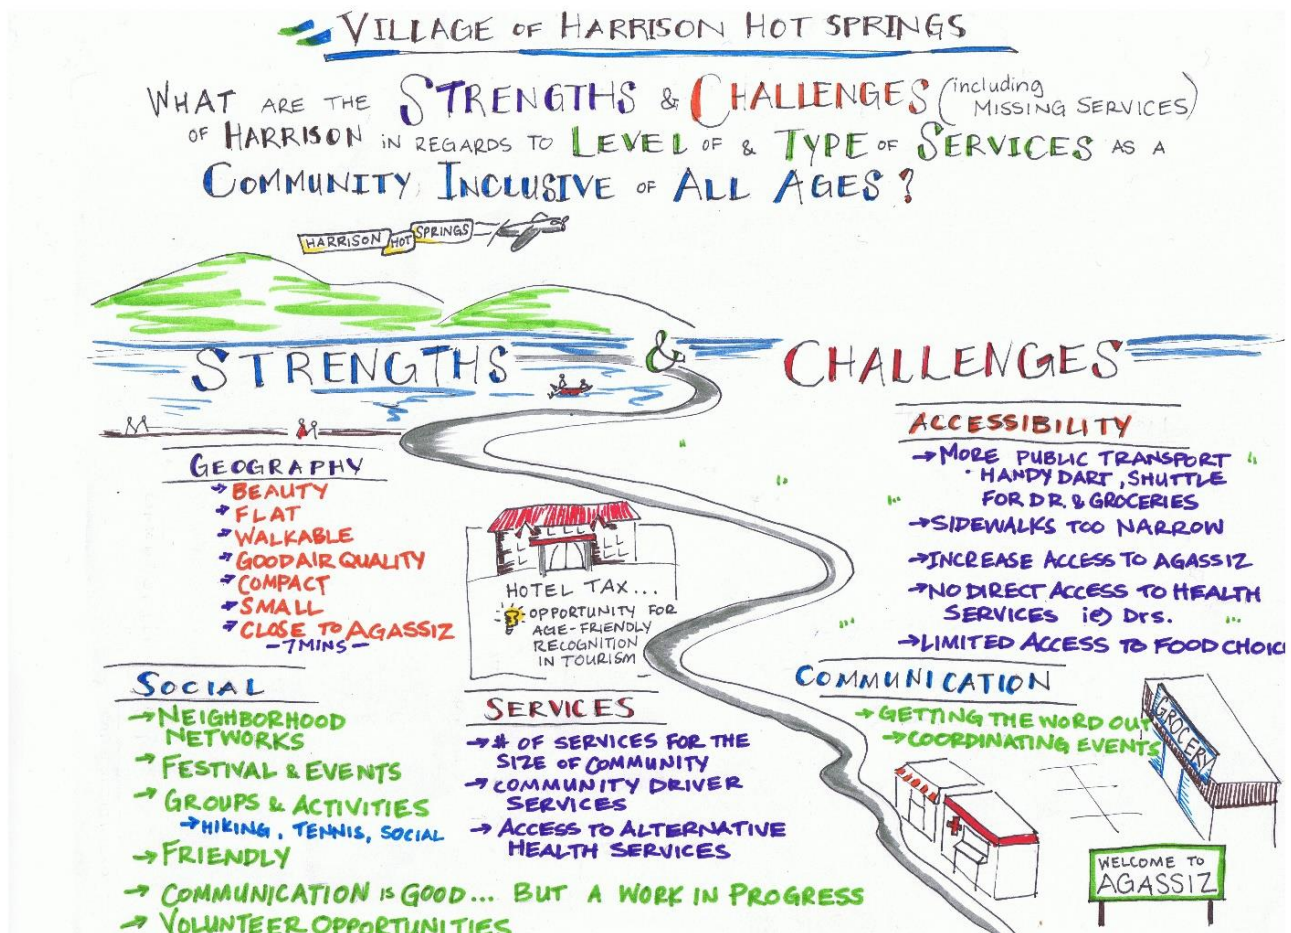 VILLAGE OF HARRISON HOT SPRINGS
WHAT ARE THE STRENGTHS & CHALLENGES (including MISSING SERVICES)
OF HARRISON IN REGARDS TO LEVEL OF & TYPE OF SERVICES AS A
COMMUNITY INCLUSIVE OF ALL AGES?
HARRISON HOT SPRINGS
STRENGTHS & CHALLENGES
GEOGRAPHY
→ BEAUTY
→ FLAT
→ WALKABLE
→ GOOD AIR QUALITY
→ COMPACT
→ SMALL
→ CLOSE TO AGASSIZ
- 7 MINS -
HOTEL TAX...
OPPORTUNITY FOR
AGE-FRIENDLY
RECOGNITION
IN TOURISM
SOCIAL
→ NEIGHBORHOOD
NETWORKS
→ FESTIVAL & EVENTS
→ GROUPS & ACTIVITIES
→ HIKING, TENNIS, SOCIAL
→ FRIENDLY
→ COMMUNICATION IS GOOD... BUT A WORK IN PROGRESS
→ VOLUNTEER OPPORTUNITIES
SERVICES
→ # OF SERVICES FOR THE
SIZE OF COMMUNITY
→ COMMUNITY DRIVER
SERVICES
→ ACCESS TO ALTERNATIVE
HEALTH SERVICES
ACCESSIBILITY
→ MORE PUBLIC TRANSPORT
· HANDY DART, SHUTTLE
FOR DR. & GROCERIES
→ SIDEWALKS TOO NARROW
→ INCREASE ACCESS TO AGASSIZ
→ NO DIRECT ACCESS TO HEALTH
SERVICES ie) Drs.
→ LIMITED ACCESS TO FOOD CHOIC
COMMUNICATION
→ GETTING THE WORD OUT
→ COORDINATING EVENTS
GROCERY
WELCOME TO
AGASSIZ